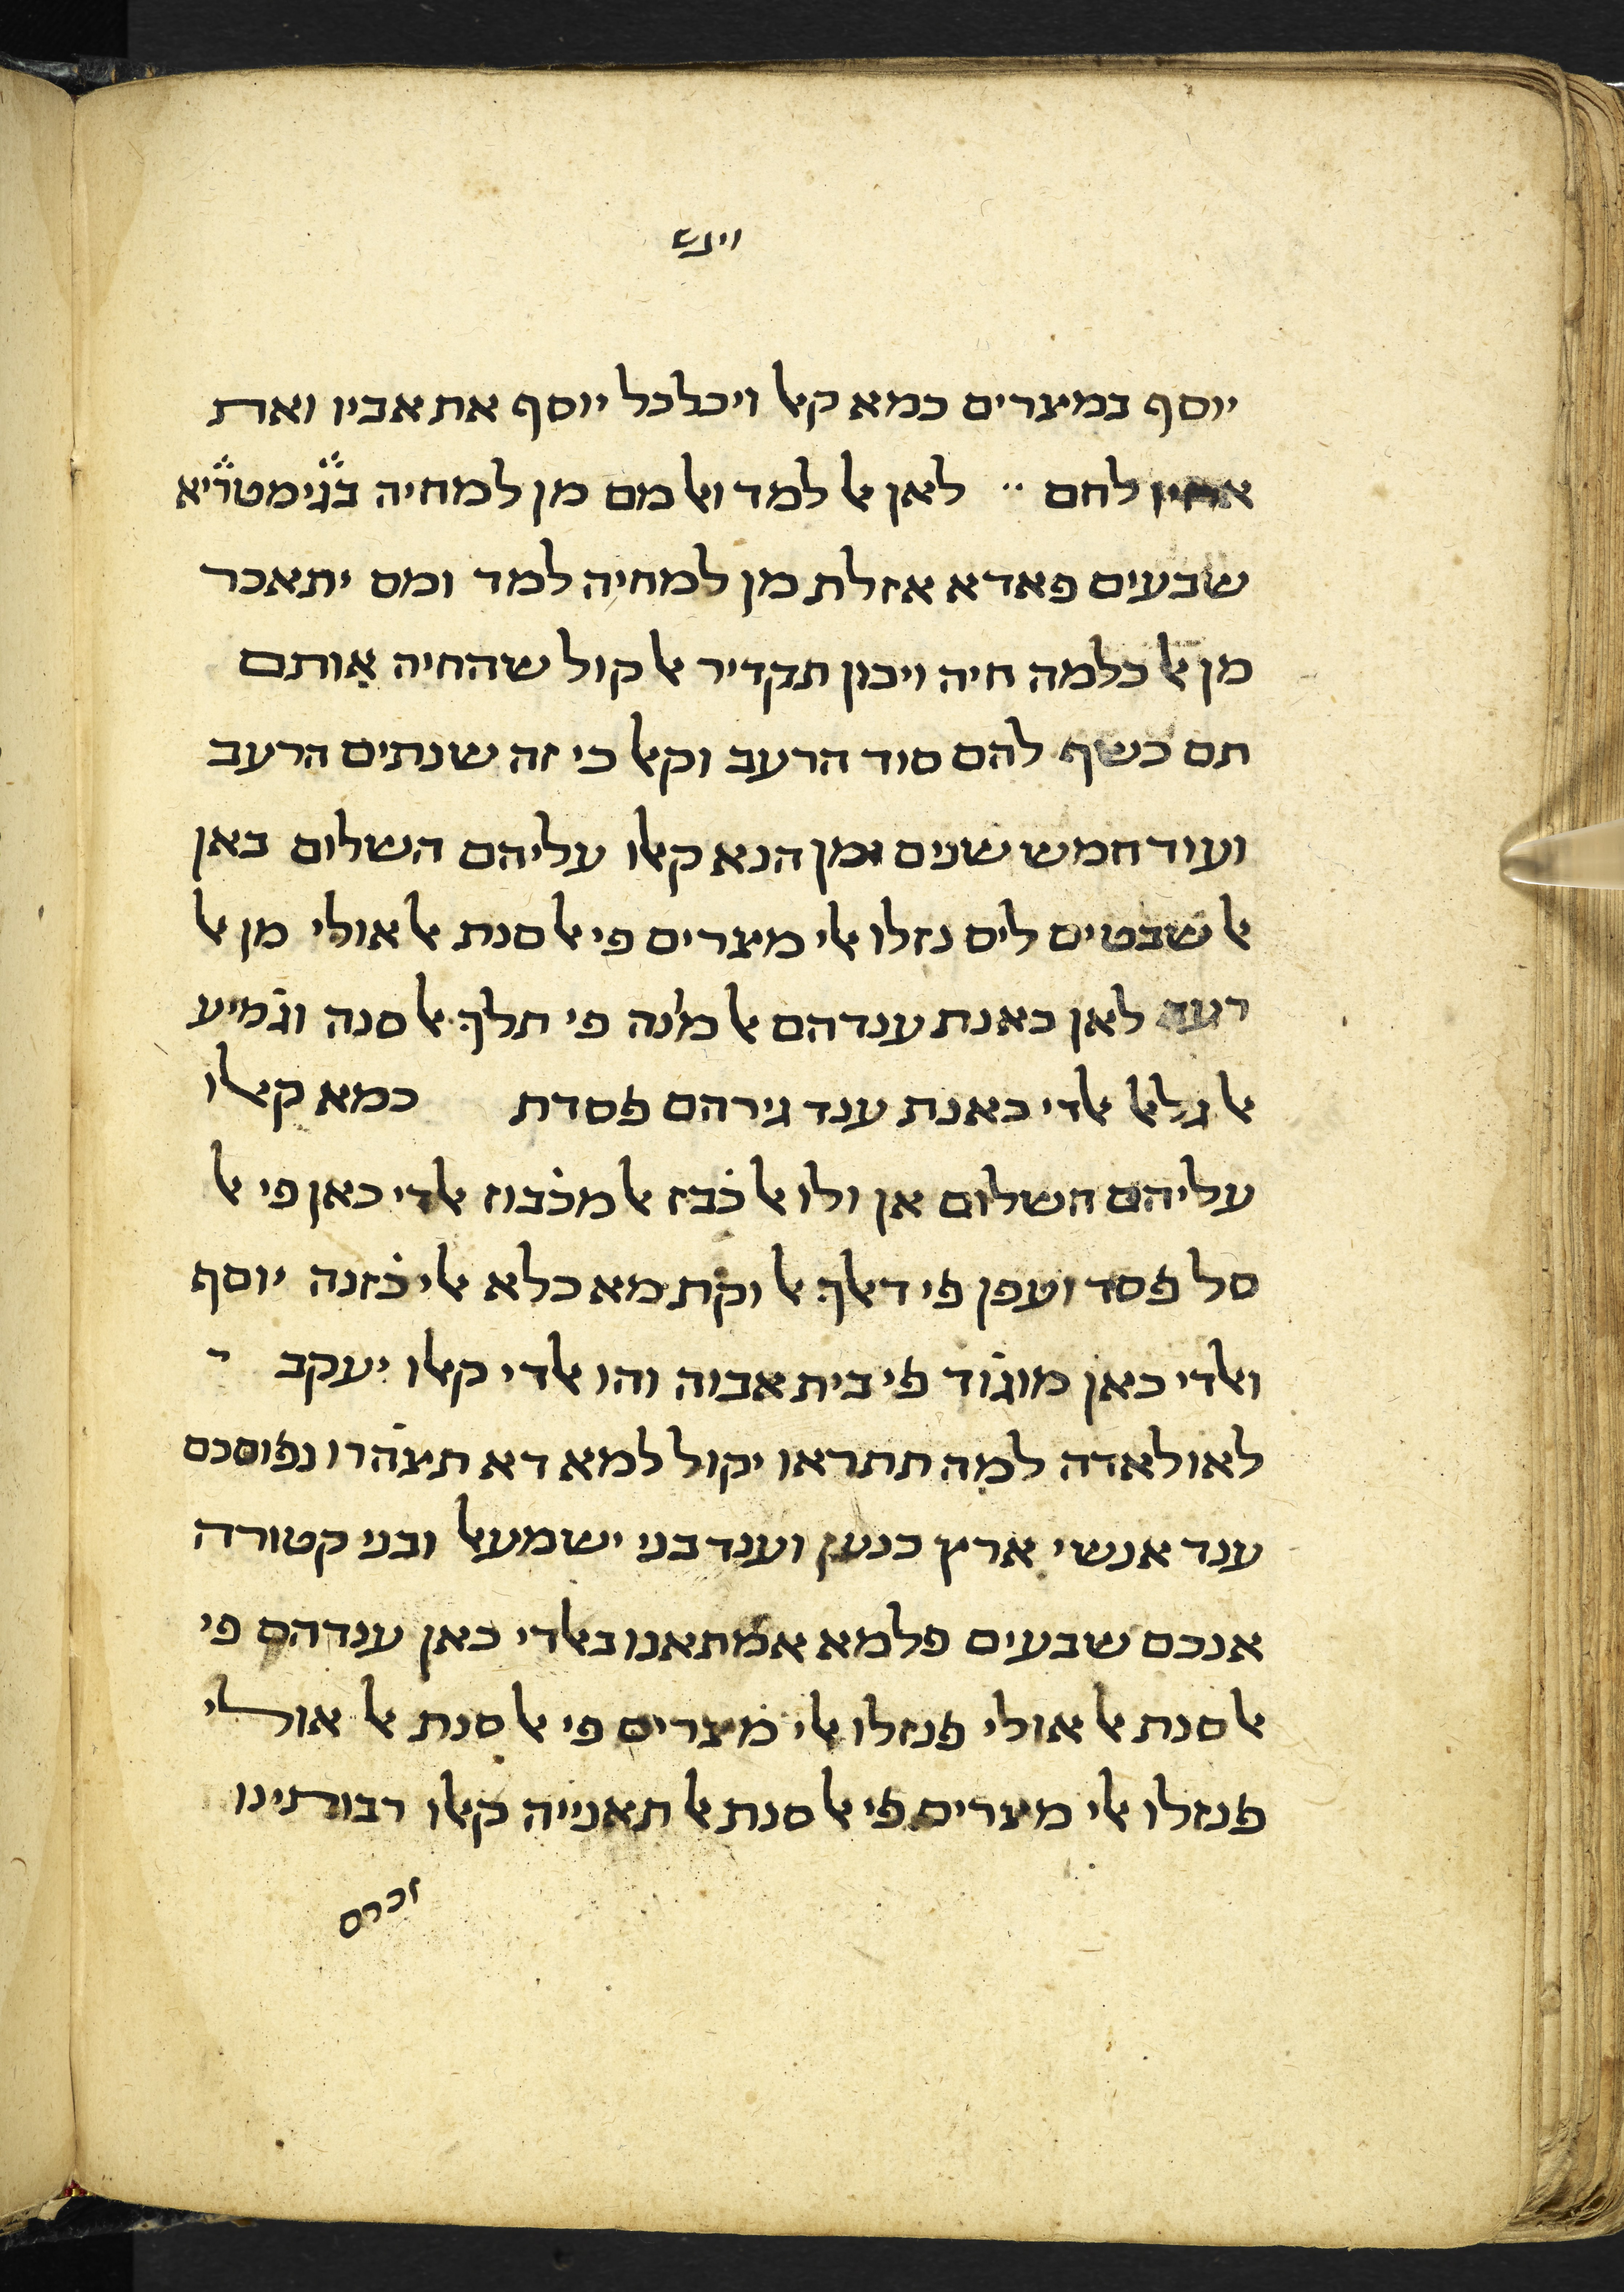 ויגש
יוסף במצרים כמא קאל ויכלכל יוסף את אביו ואת
אחיו לחם ·· לאן אל למד ואל מם מן למחיה בגימטריא
שבעים פאדא אזלת מן למחיה למד ומם יתאכר
מן אל כלמה חיה ויכון תקדיר אל קול שהחיה אותם
תם כשף להם סוד הרעב וקאל כי זה שנתים הרעב
ועוד חמש שנים ומן הנא קאלו עליהם השלום באן
אל שבטים ליס נזלו אלי מצרים פי אל סנת אל אולי מן אל
רעב לאן כאנת ענדהם אל מ̇נה פי תלך אל סנה וג̇מיע
אל גלאל אלדי כאנת ענד גירהם פסדת כמא קאלו
עליהם השלום אן ולו אל כ̇בז אל מכ̇בוז אלדי כאן פי אל
סל פסד ועפן פי דאלך אל וקת מא כלא אלי כ̇זנה יוסף
ואלדי כאן מוג̇וד פי בית אבוה והו אלדי קאלו יעקב י
לאולאדה למה תתראו יקול למא דא תצ̇הרו נפוסכם
ענד אנשי ארץ כנען וענד בני ישמעאל ובני קטורה
אנכם שבעים פלמא אמתאנו באלדי כאן ענדהם פי
אל סנת אל אולי פנזלו אלי מצרים פי אל סנת אל אולי
פנזלו אלי מצרים פי אל סנת אל תאנייה קאלו רבותינו
זכרם